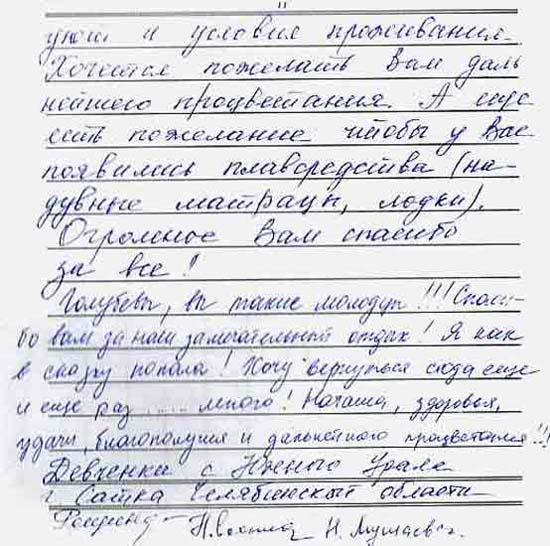 11
и условия проживания.
Хочется пожелать Вам даль
нейшего процветания. А еще
есть пожелание чтобы у Вас
появились плавсредства (на-
дувные матрацы, лодки).
Огромное Вам спасибо
за все!
Голубевы, вы такие молодцы!!! Спаси-
бо вам за наш замечательный отдых! Я как
в сказку попала! Хочу вернуться сюда еще
и еще раз ..... много! Наташа, здоровья,
удачи, благополучия и дальнейшего процветания!!!
Девченки с Южного Урала
г. Сатка Челябинской области